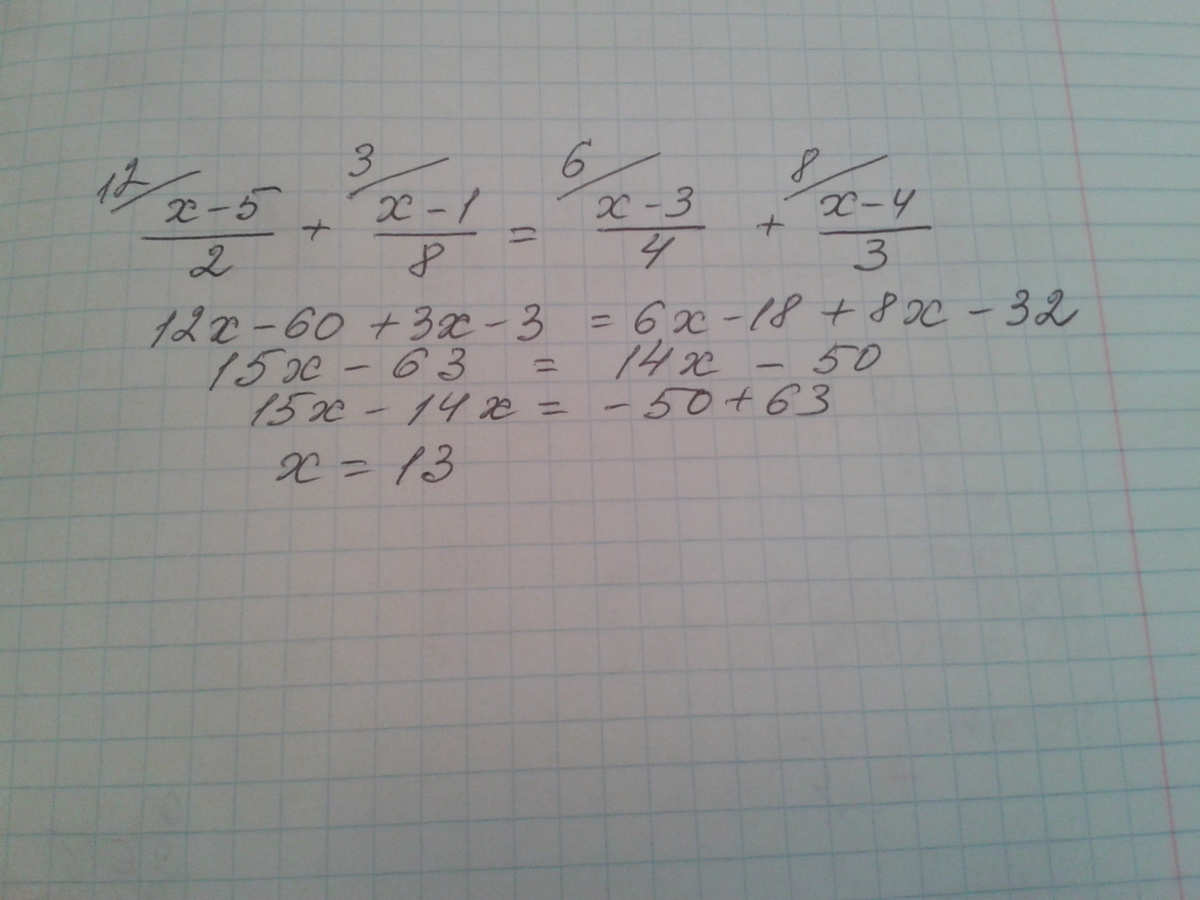 12/ 3/ 6/ 8/
(x-5)/2 + (x-1)/8 = (x-3)/4 + (x-4)/3
12x-60+3x-3 = 6x-18+8x-32
15x-63 = 14x-50
15x-14x = -50+63
x = 13